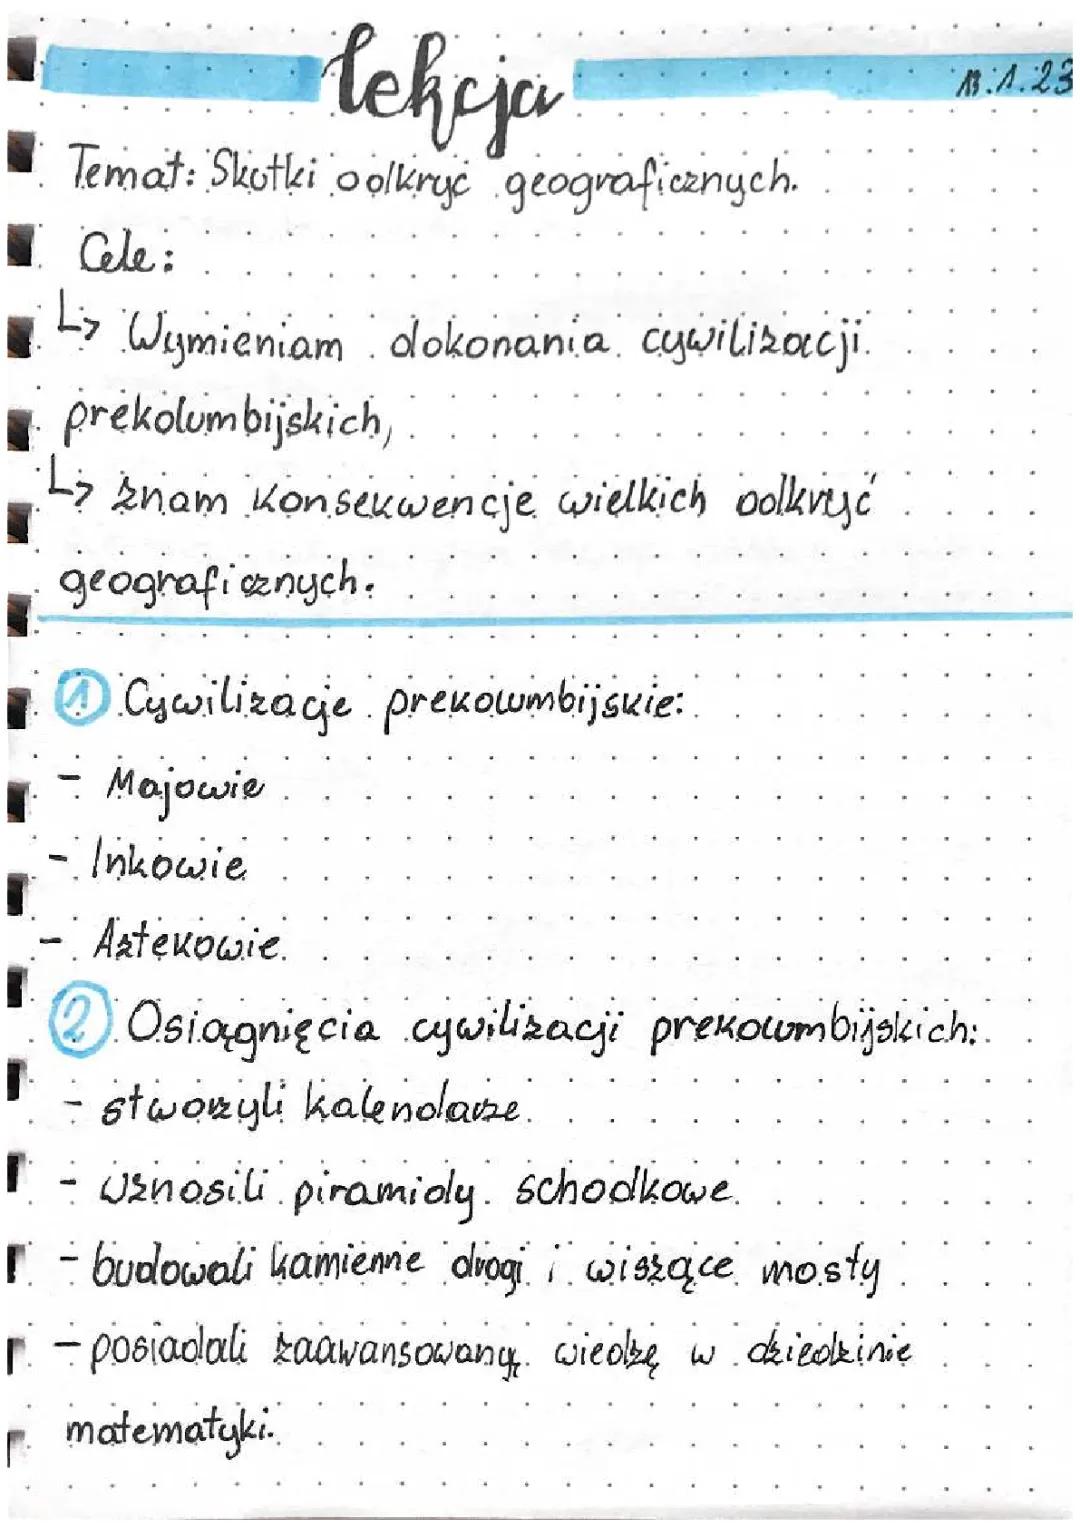 lekcja
13.1.23
Temat: Skutki odkryć geograficznych.
Cele:
↳ Wymieniam dokonania cywilizacji
prekolumbijskich,
↳ znam konsekwencje wielkich odkryć
geograficznych.
① Cywilizacje prekolumbijskie:
- Majowie
- Inkowie
- Aztekowie.
② Osiągnięcia cywilizacji prekolumbijskich:
- stworzyli kalendarze.
- wznosili piramidy schodkowe.
- budowali kamienne drogi i wiszące mosty
- posiadali zaawansowaną wiedzę w dziedzinie
matematyki.